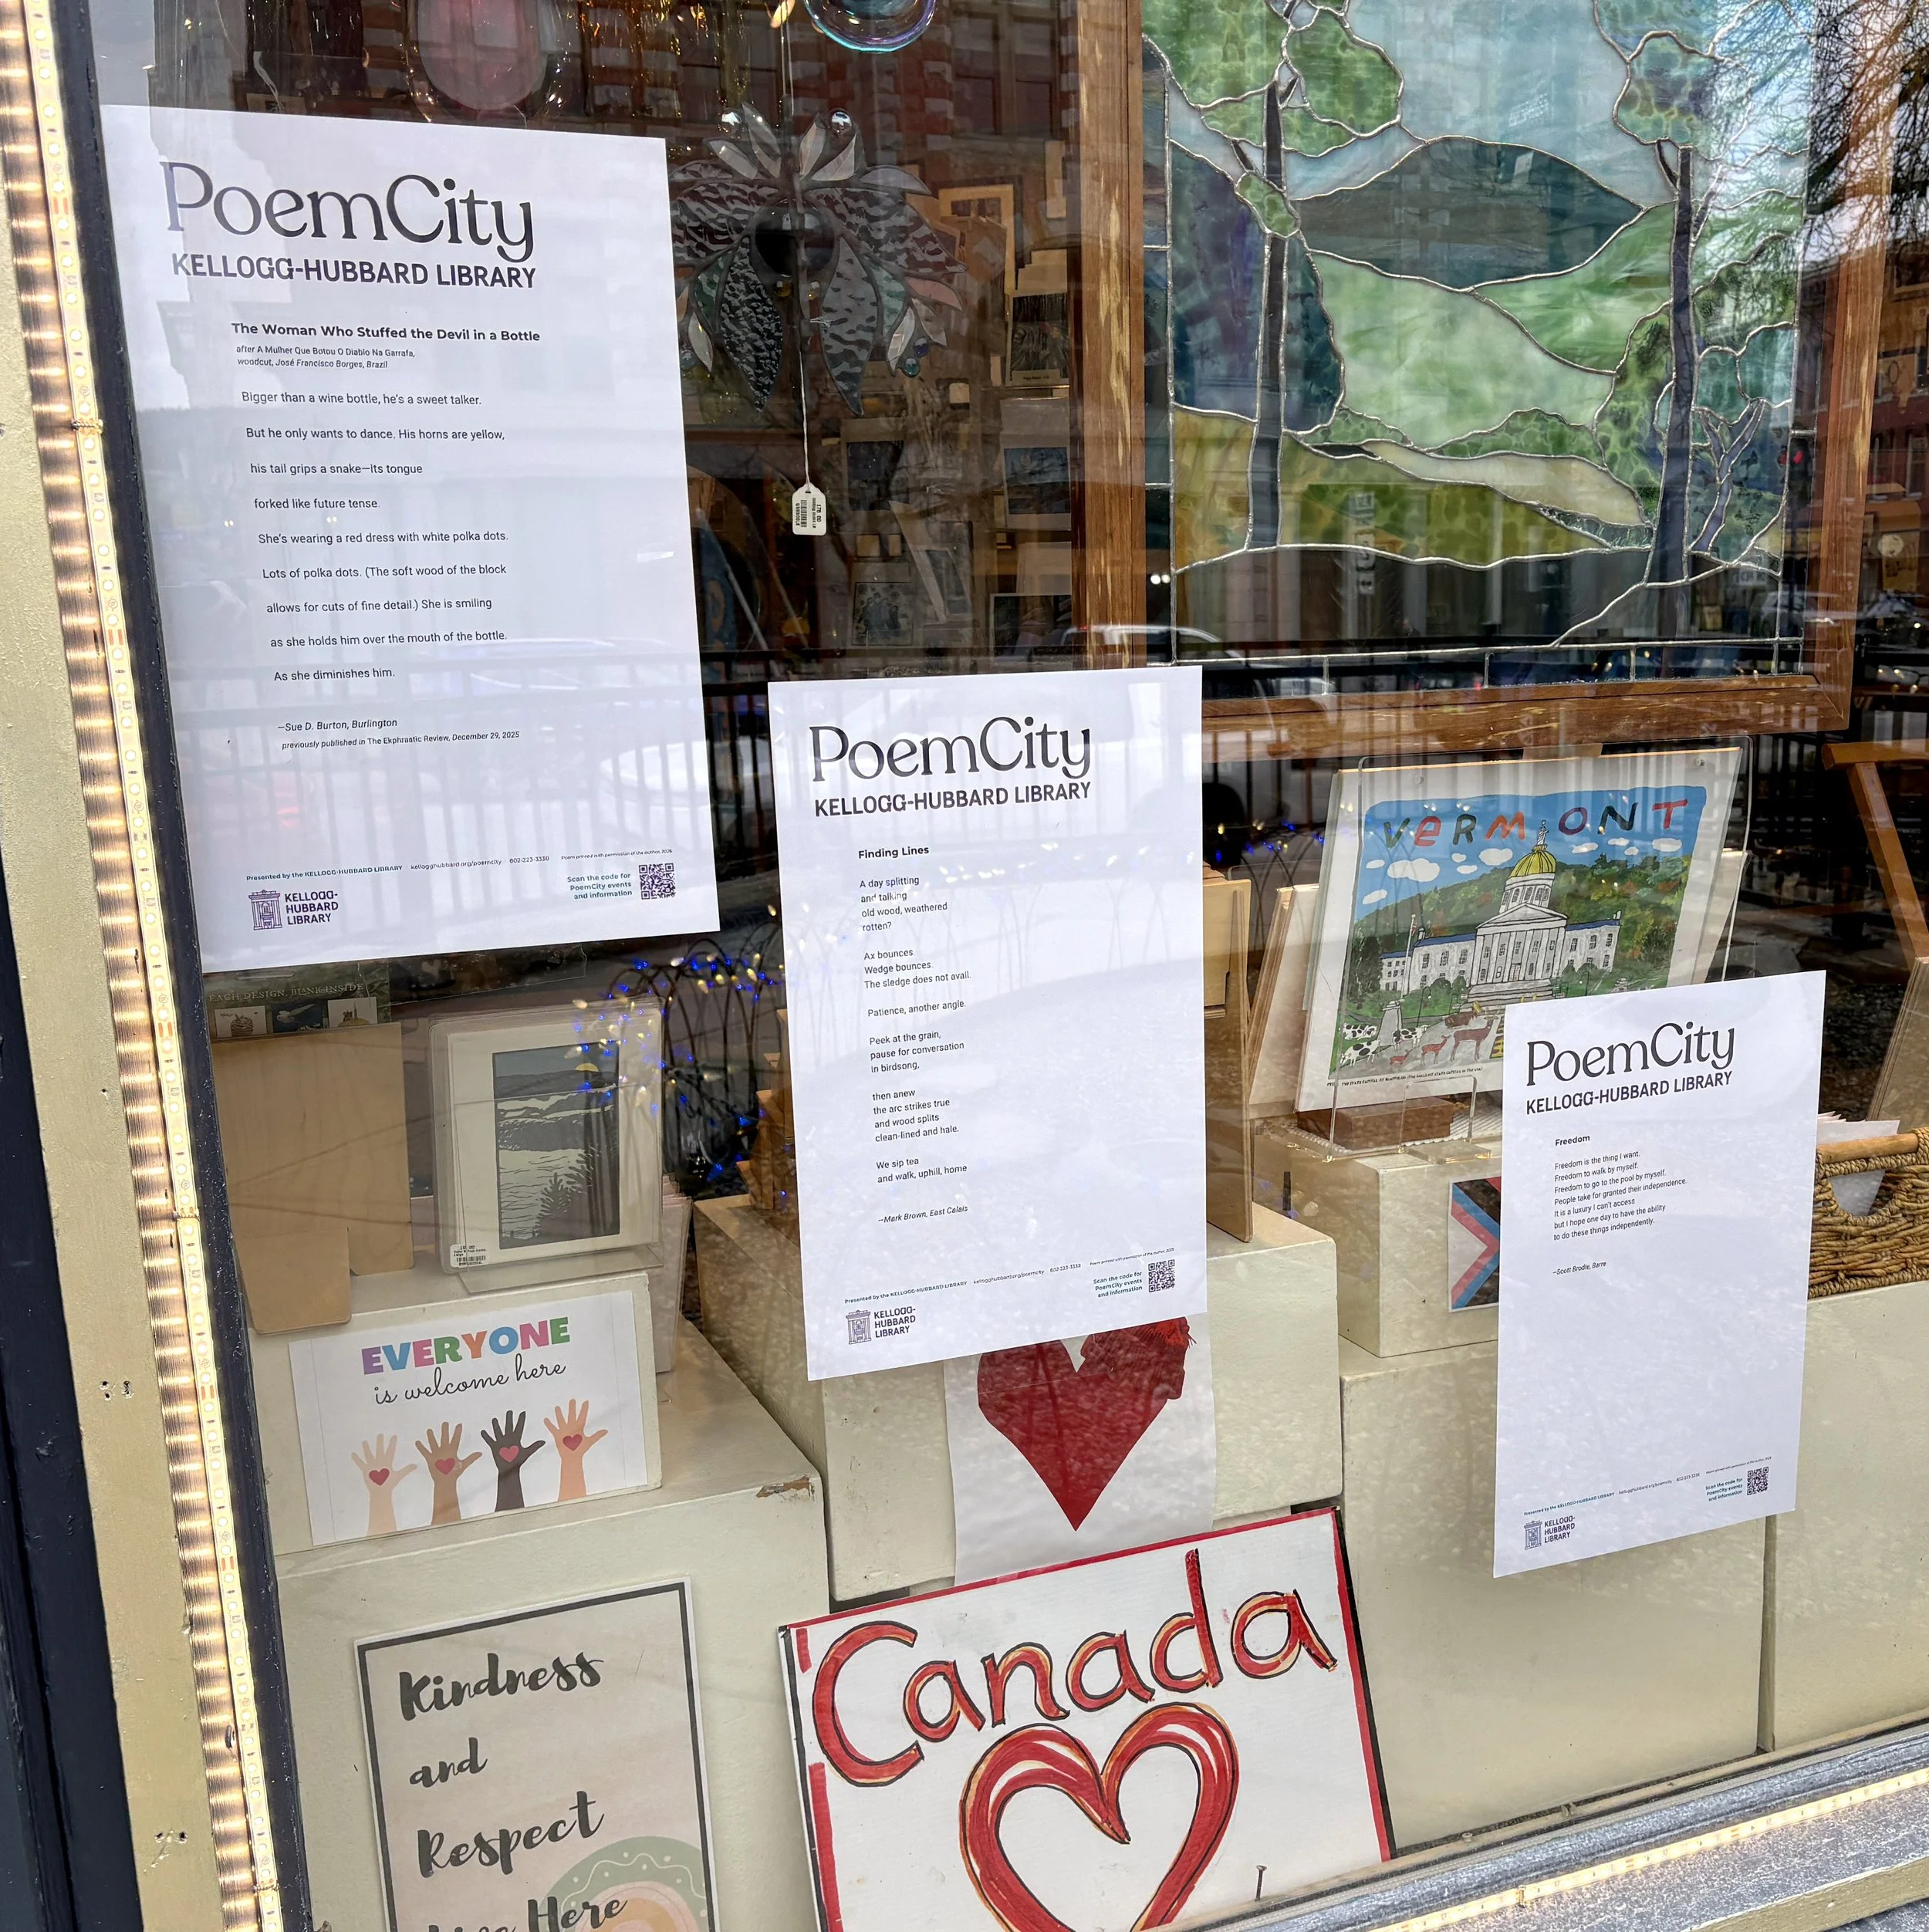 PoemCity
KELLOGG-HUBBARD LIBRARY
The Woman Who Stuffed the Devil in a Bottle
after A Mulher Que Botou O Diablo Na Garrafa,
woodcut, José Francisco Borges, Brazil
Bigger than a wine bottle, he's a sweet talker.
But he only wants to dance. His horns are yellow,
his tail grips a snake—its tongue
forked like future tense.
She's wearing a red dress with white polka dots.
Lots of polka dots. (The soft wood of the block
allows for cuts of fine detail.) She is smiling
as she holds him over the mouth of the bottle.
As she diminishes him.
—Sue D. Burton, Burlington
previously published in The Ekphrastic Review, December 29, 2025
Presented by the KELLOGG-HUBBARD LIBRARY kellogghubbard.org/poemcity 802-223-3338 Poem printed with permission of the author, 2026
KELLOGG-
HUBBARD
LIBRARY
Scan the code for
PoemCity events
and information
PoemCity
KELLOGG-HUBBARD LIBRARY
Finding Lines
A day splitting
and talking
old wood, weathered
rotten?
Ax bounces
Wedge bounces.
The sledge does not avail.
Patience, another angle.
Peek at the grain,
pause for conversation
in birdsong,
then anew
the arc strikes true
and wood splits
clean-lined and hale.
We sip tea
and walk, uphill, home
—Mark Brown, East Calais
Presented by the KELLOGG-HUBBARD LIBRARY kellogghubbard.org/poemcity 802-223-3338 Poem printed with permission of the author, 2026
KELLOGG-
HUBBARD
LIBRARY
Scan the code for
PoemCity events
and information
VERMONT
PoemCity
KELLOGG-HUBBARD LIBRARY
Freedom
Freedom is the thing I want.
Freedom to walk by myself.
Freedom to go to the pool by myself.
People take for granted their independence.
It is a luxury I can't access
but I hope one day to have the ability
to do these things independently.
—Scott Brodie, Barre
Presented by the KELLOGG-HUBBARD LIBRARY kellogghubbard.org/poemcity 802-223-3338
KELLOGG-
HUBBARD
LIBRARY
Scan the code for
PoemCity events
and information
EACH DESIGN, BLANK INSIDE
EVERYONE
is welcome here
Kindness
and
Respect
Here
Canada